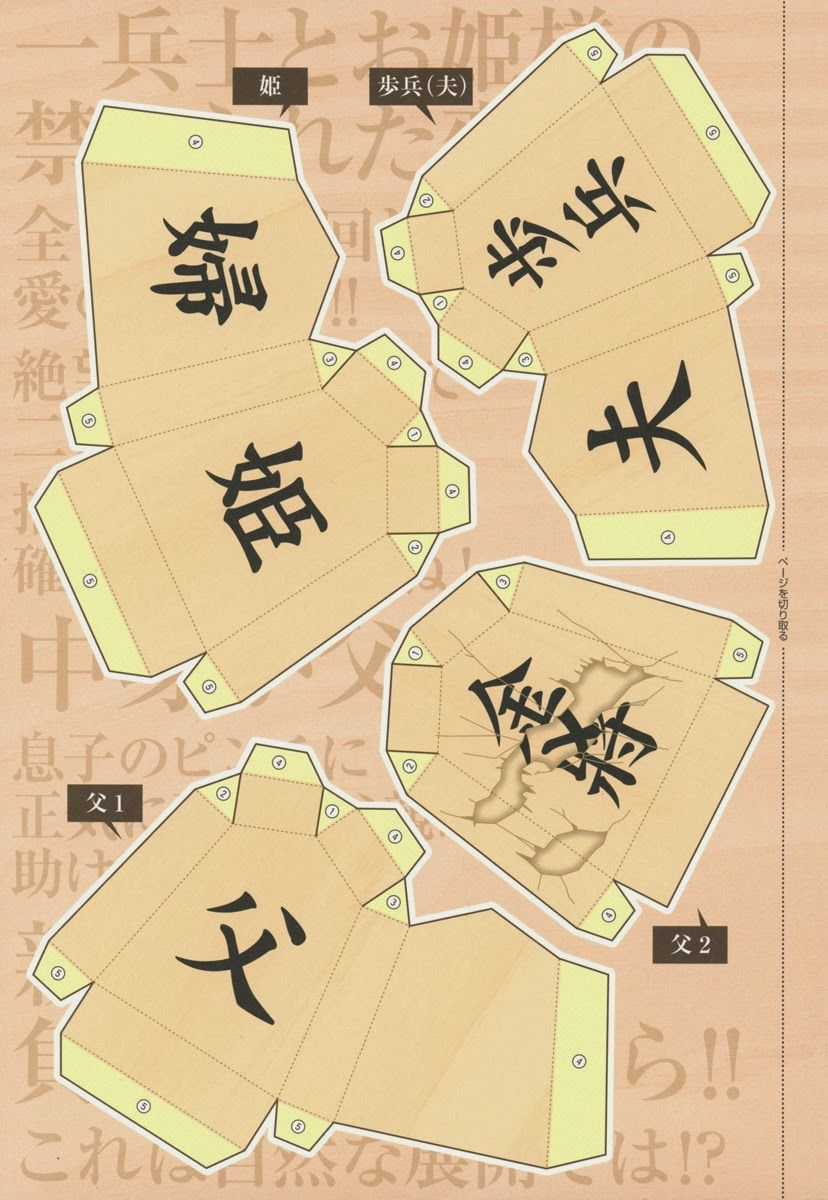 一兵士とお姫様の
禁 れた
全 回
愛 !!
絶 て
確 ね!
中 父
息子のピンチに
正気に
助け
ら!!
これは自然な展開では!?
姫
④
婦
③
④
⑤
①
姫
④
②
⑤
⑤
歩兵(夫)
⑤
⑤
②
④
歩兵
①
④
③
⑤
夫
④
③
①
⑤
金将
②
④
父2
父1
④
②
①
④
③
父
⑤
⑤
⑤
④
ページを切り取る